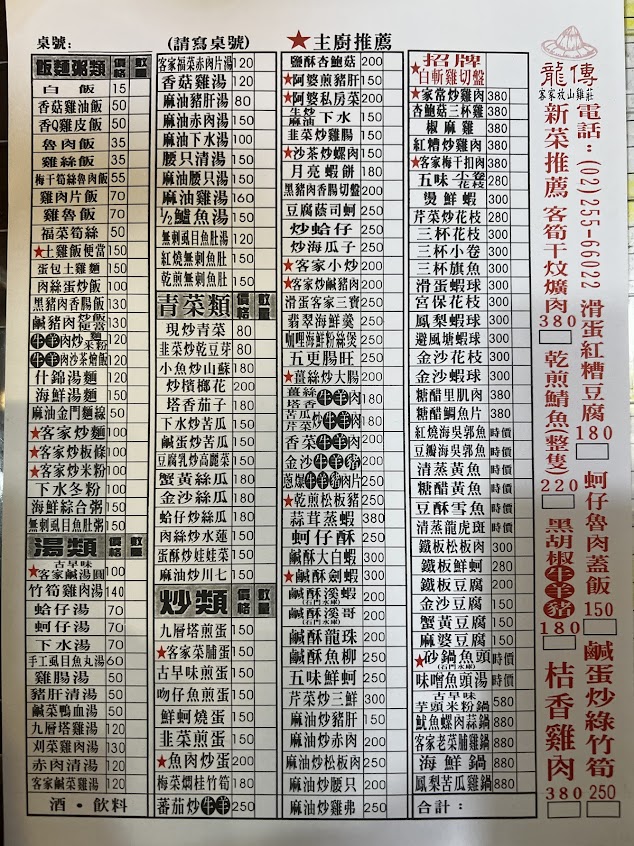 桌號:
(請寫桌號)
★主廚推薦
飯麵粥類 價格 數量
白飯 15
香菇雞油飯 50
香Q雞皮飯 50
魯肉飯 35
雞絲飯 35
梅干筍絲魯肉飯 55
雞肉片飯 70
雞魯飯 70
福菜筍絲 50
★土雞飯便當 150
蛋包土雞麵 150
肉絲蛋炒飯 100
黑豬肉香腸飯 130
鹹豬肉炒飯便當 130
牛羊肉炒麵米粉 120
牛羊肉沙茶燴飯 120
什錦湯麵 120
海鮮湯麵 150
麻油金門麵線 50
★客家炒麵 100
★客家炒板條 100
★客家炒米粉 100
下水冬粉 100
海鮮綜合粥 150
無刺虱目魚肚粥 150
湯類 價格 數量
★古早味客家鹹湯圓 100
竹筍雞肉湯 140
蛤仔湯 70
蚵仔湯 70
下水湯 70
手工虱目魚丸湯 60
雞腸湯 50
豬肝清湯 50
鹹菜鴨血湯 50
九層塔雞湯 120
刈菜雞肉湯 120
赤肉清湯 120
客家鹹菜雞湯 120
酒・飲料
客家福菜赤肉片湯 120
香菇雞湯 120
麻油豬肝湯 80
麻油赤肉湯 150
麻油下水湯 100
腰只清湯 150
麻油腰只湯 150
麻油雞湯 160
½鱸魚湯 150
無刺虱目魚肚湯 120
紅燒無刺魚肚 150
乾煎無刺魚肚 150
青菜類 價格 數量
現炒青菜 80
韭菜炒乾豆芽 80
小魚炒山蘇 180
炒檳榔花 200
塔香茄子 180
下水炒苦瓜 150
鹹蛋炒苦瓜 150
豆腐乳炒高麗菜 150
蟹黃絲瓜 180
金沙絲瓜 180
蛤仔炒絲瓜 180
肉絲炒水蓮 150
蛋酥炒娃娃菜 150
麻油炒川七 150
炒類 價格 數量
九層塔煎蛋 150
★客家菜脯蛋 150
古早味煎蛋 150
吻仔魚煎蛋 150
鮮蚵燒蛋 150
韭菜煎蛋 150
★魚肉炒蛋 200
梅菜燜桂竹筍 180
蕃茄炒牛羊 250
鹽酥杏鮑菇 200
★阿婆煎豬肝 150
★阿婆私房菜 200
生炒麻油下水 150
韭菜炒雞腸 150
★沙茶炒螺肉 150
月亮蝦餅 180
黑豬肉香腸切盤 200
豆腐蔭司蚵 250
炒蛤仔 250
炒海瓜子 250
★客家小炒 200
★客家炒鹹豬肉 200
滑蛋客家三寶 250
翡翠海鮮羹 250
咖哩海鮮粉絲煲 250
五更腸旺 250
★薑絲炒大腸 200
薑絲塔香牛羊肉 180
苦瓜芹菜炒牛羊肉 180
香菜牛羊肉 200
金沙牛羊豬 200
蔥爆牛羊豬肉片 200
★乾煎松板豬 250
蒜茸蒸蝦 380
蚵仔酥 250
鹹酥大白蝦 300
★鹹酥劍蝦 300
鹹酥溪蝦(石門水庫) 200
鹹酥溪哥(石門水庫) 200
鹹酥龍珠 250
鹹酥魚柳 250
五味鮮蚵 250
芹菜炒三鮮 300
麻油炒豬肝 150
麻油炒赤肉 200
麻油炒松板肉 250
麻油炒腰只 200
麻油炒雞弗 250
招牌★白斬雞切盤
★家常炒雞肉 380
杏鮑菇三杯雞 380
椒麻雞 380
紅糟炒雞肉 380
★客家梅干扣肉 380
五味小卷花枝 280
燙鮮蝦 300
芹菜炒花枝 280
三杯花枝 300
三杯小卷 300
三杯旗魚 300
滑蛋蝦球 300
宮保花枝 300
鳳梨蝦球 300
避風塘蝦球 300
金沙花枝 300
金沙蝦球 300
糖醋里肌肉 380
糖醋鯛魚片 380
紅燒海吳郭魚 時價
豆瓣海吳郭魚 時價
清蒸黃魚 時價
糖醋黃魚 時價
豆酥雪魚 時價
清蒸龍虎斑 時價
鐵板松板肉 300
鐵板鮮蚵 280
鐵板豆腐 200
金沙豆腐 150
蟹黃豆腐 150
麻婆豆腐 150
★砂鍋魚頭(石門水庫) 時價
味噌魚頭湯 時價
古早味芋頭米粉鍋 580
魷魚螺肉蒜鍋 880
客家老菜脯雞鍋 880
海鮮鍋 880
鳳梨苦瓜雞鍋 880
合計:
龍傳
客家放山雞莊
電話:(02)255-66022
新菜推薦
客筍干炆爌肉 380
滑蛋紅糟豆腐 180
乾煎鯖魚(整隻) 220
蚵仔魯肉蓋飯 150
黑胡椒牛羊豬 180
鹹蛋炒綠竹筍 250
桔香雞肉 380